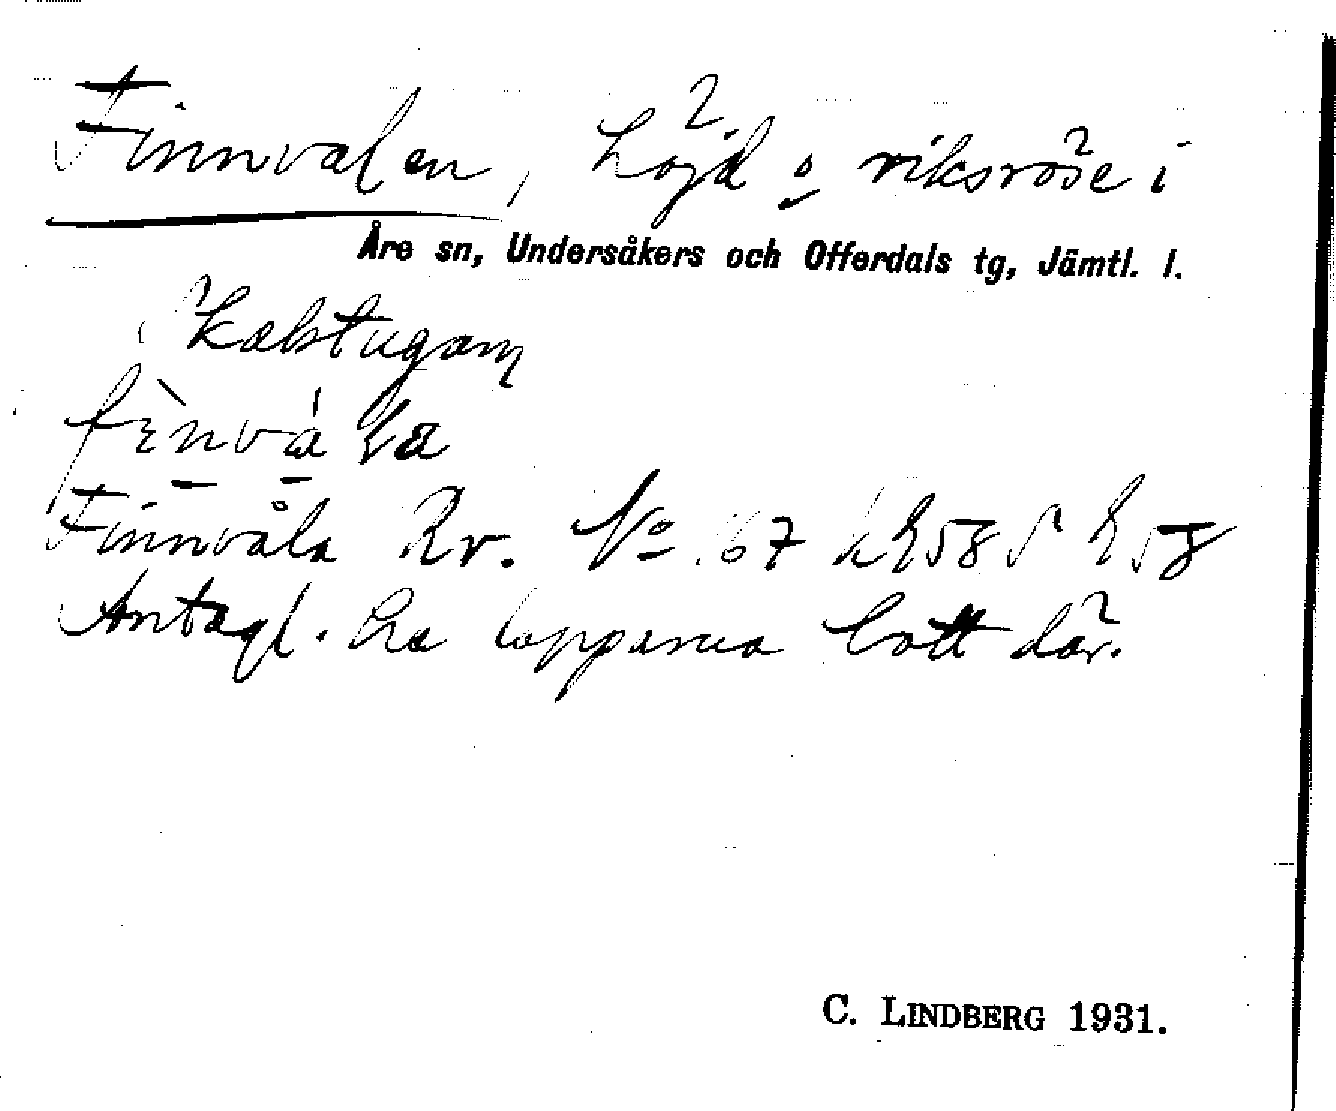 Finnvalen, höjd o riksröse i
Åre sn, Undersåkers och Offerdals tg, Jämtl. l.
i Skalstugan
Finnvåla Rr. No 167
Antagl. ha lapparna bott där.
C. LINDBERG 1931.